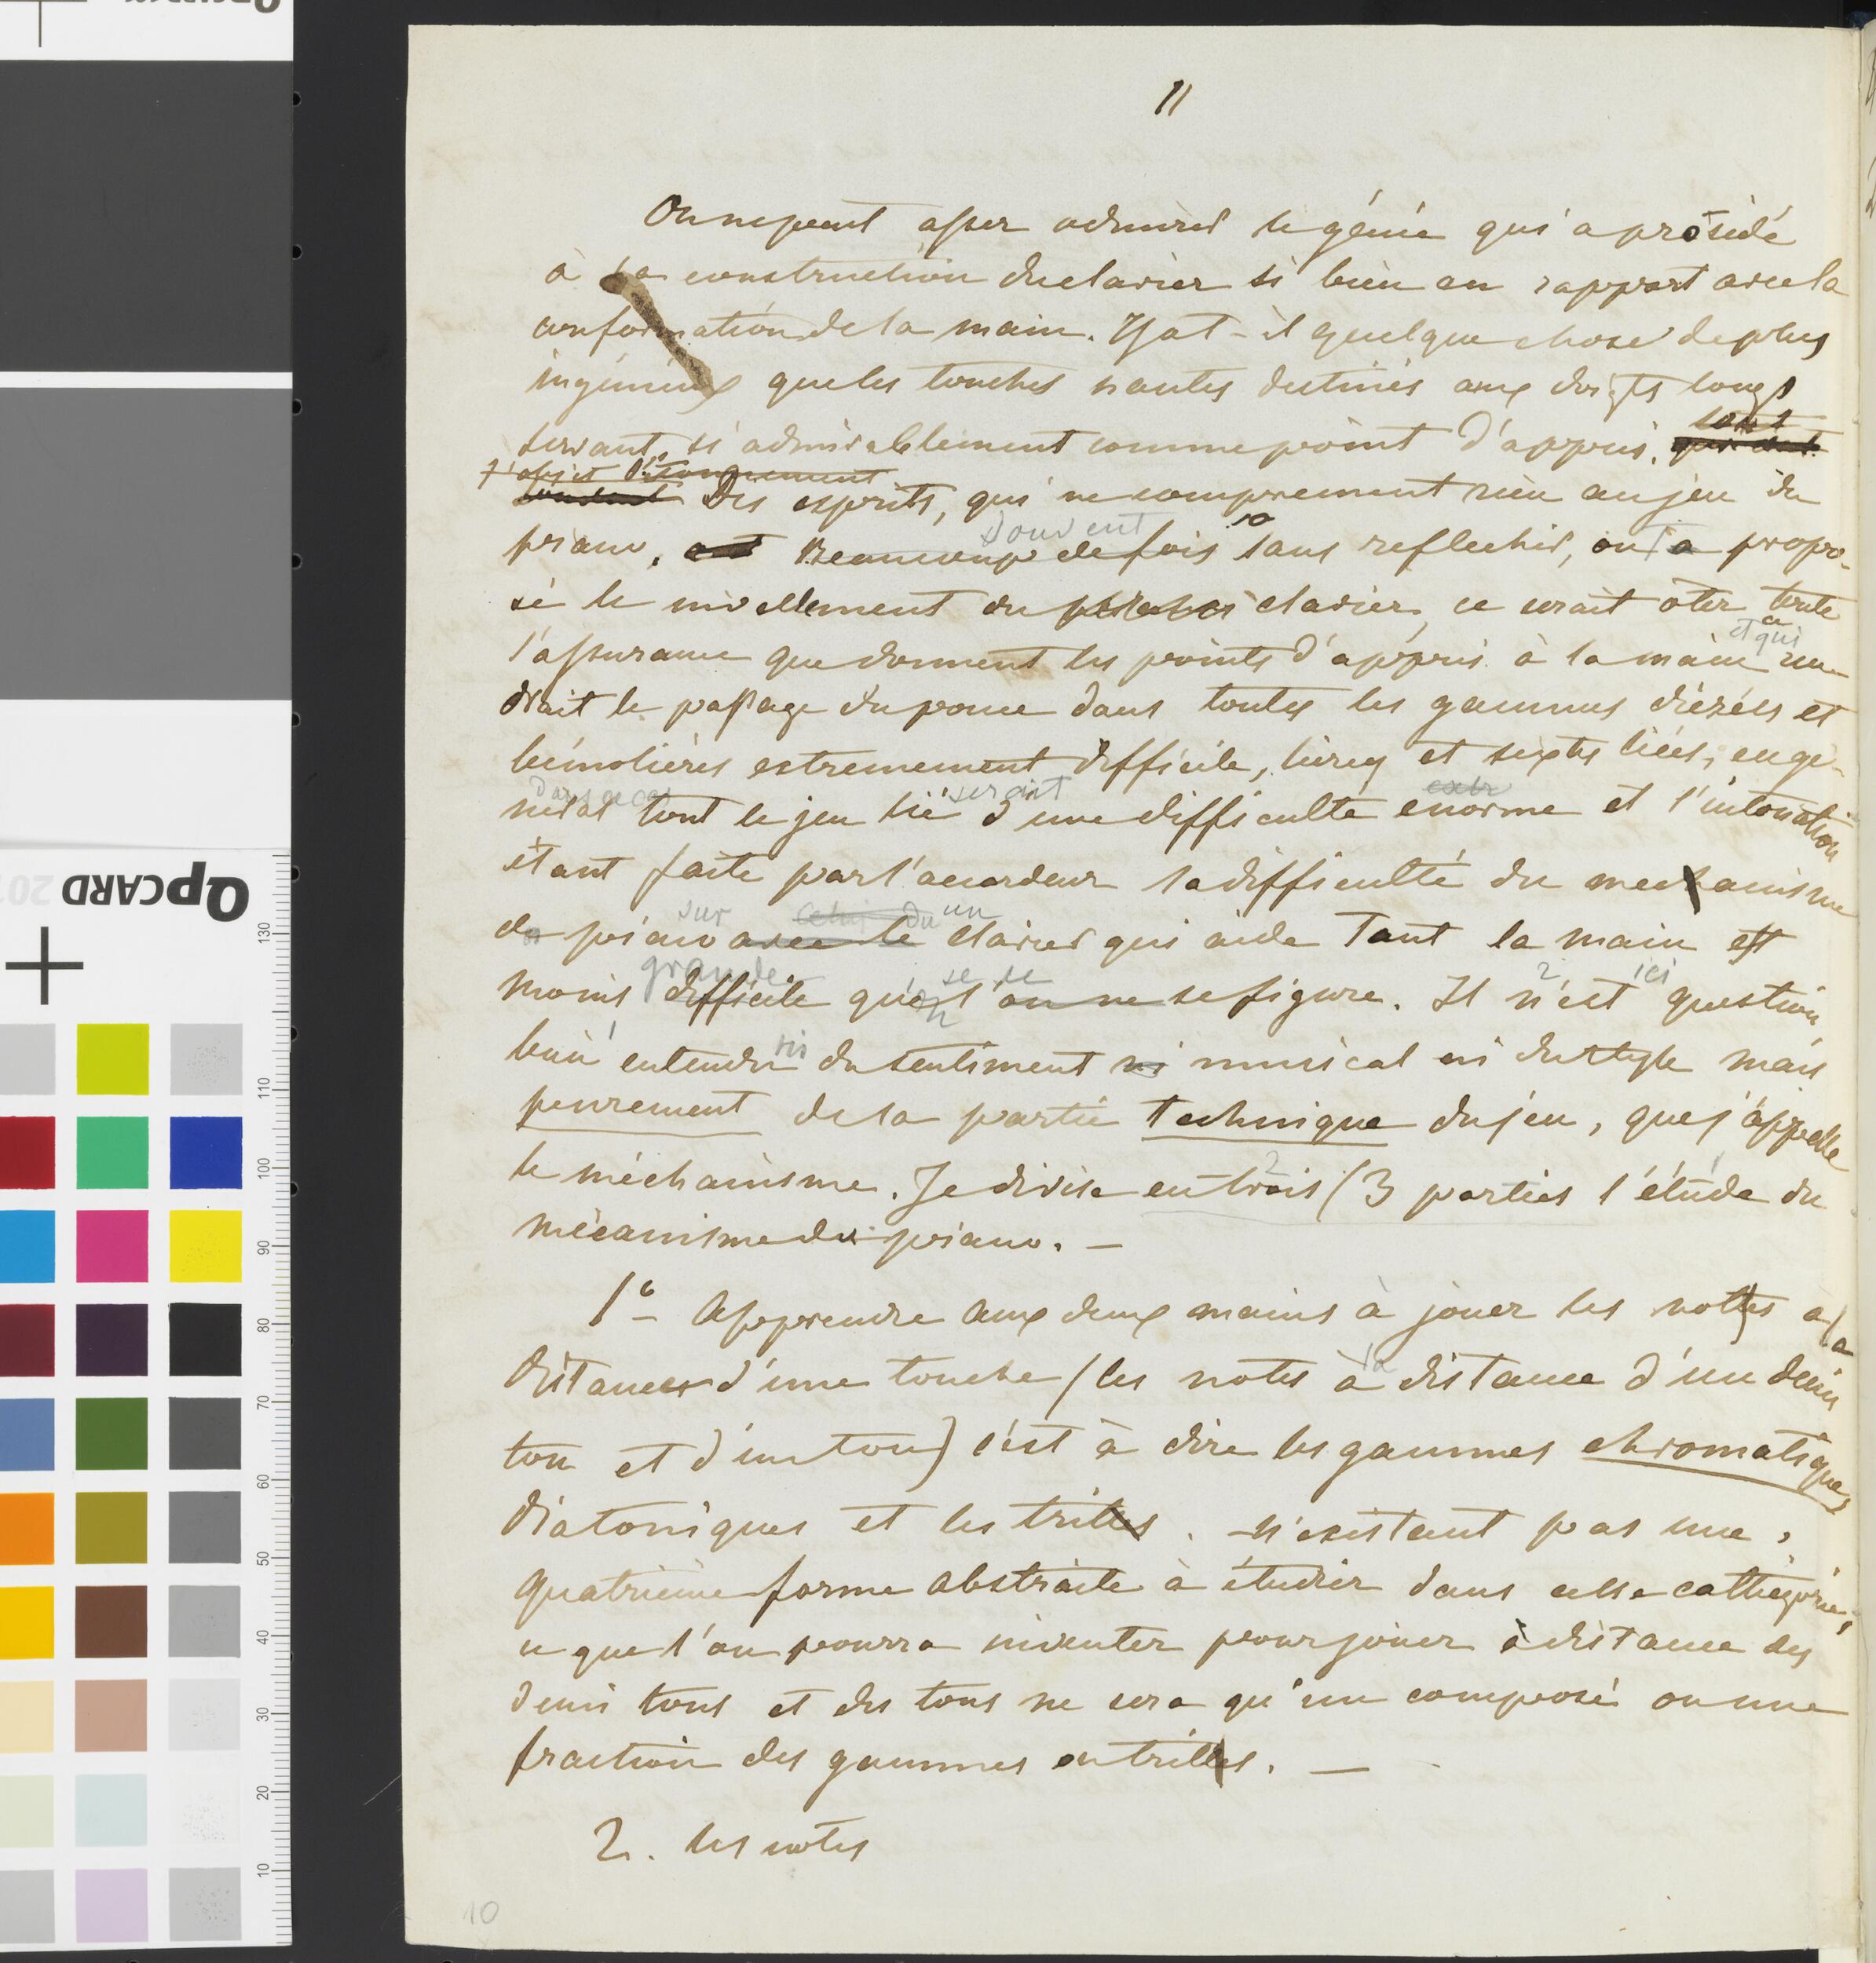 11
On ne peut assez admirer le génie qui a présidé
à la construction du clavier si bien en rapport avec la
conformation de la main. Y a t-il quelque chose de plus
ingénieux que les touches hautes destinés aux doigts longs
servant si admirablement comme point d'appui.
l'objet d'étonnement Des esprits, qui ne comprennent rien au jeu du
souvent
piano, Beaucoup de fois sans reflechir, ont a propo-
sé le nivellement du clavier, ce serait oter toute
et qui
l'assurance que donnent les points d'appui à la main ren-
drait le passage du pouce dans toutes les gammes diézées et
bémolières extremement difficile, tierces et sixtes liées, en gé-
dans ce cas serait extr
néral tout le jeu lié d'une difficulte enorme et l'intonation
étant faite par l'accordeur la difficulté du mechanisme
sur celui du un
de piano avec le clavier qui aide Tant la main est
grande se le
moins difficile qu'on l'on ne se figure. Il n'est ici question
ni
bien entendu du sentiment ni musical ni du style mais
purement de la partie Technique du jeu, que j'appelle
le méchanisme. Je divise en trois (3 parties l'étude du
mécanisme du piano. —
1° – Apprendre aux deux mains à jouer les nottes a la
distances d'une touche (les notes à la distance d'un demi
ton et d'un ton) c'est à dire les gammes chromatiques
diatoniques et les trilles. N'existant pas une
quatrieme forme abstraite à étudier dans cette cathégorie,
ce que l'on pourra inventer pour jouer à distance des
demi tons et des tons ne sera qu'un composé ou une
fraction des gammes ou trilles. —
2. les notes
10
QPCARD
130
110
100
90
80
70
60
50
40
30
20
10